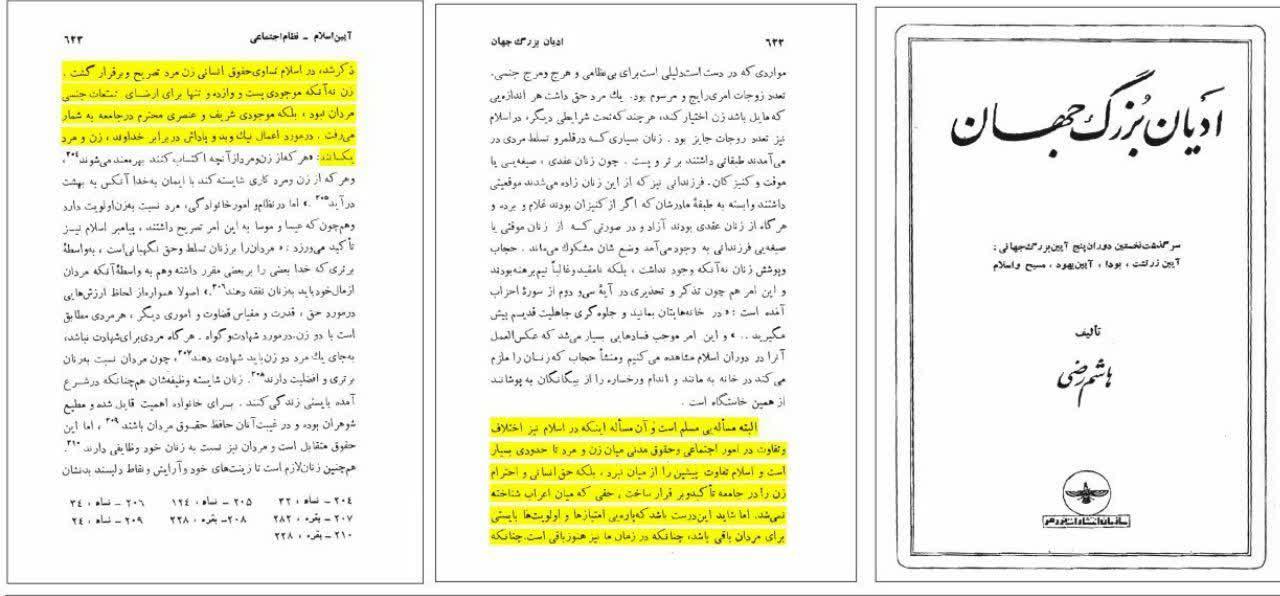 ادیان بزرگ جهان
سرگذشت نخستین دوران پنج آیین بزرگ جهانی :
آیین زرتشت ، بودا ، آیین یهود ، مسیح و اسلام
تألیف
هاشم رضی
سازمان انتشارات
۶۳۲
ادیان بزرگ جهان
مواردی که در دست است دلیلی است برای بی‌نظامی و هرج ومرج جنسی.
تعدد زوجات امری رایج و مرسوم بود. یك مرد حق داشت هر اندازه‌یی
که مایل باشد زن اختیار کند، هرچند که تحت شرایطی دیگر، در اسلام
نیز تعدد زوجات جایز بود . زنان بسیاری که در قلمرو تسلط مردی در
می‌آمدند طبقاتی داشتند برتر و پست . چون زنان عقدی ، صیغه‌یی یا
موقت و کنیزکان. فرزندانی نیز که از این زنان زاده می‌شدند موقعیتی
داشتند وابسته به طبقهٔ مادرشان که اگر از کنیزان بودند غلام و برده و
هرگاه از زنان عقدی بودند آزاد و در صورتی که از زنان موقتی یا
صیغه‌یی فرزندانی به وجود می‌آمد وضع شان مشکوك می‌ماند . حجاب
وپوشش زنان نه‌آنکه وجود نداشت ، بلکه نامقید وغالباً نیم برهنه بودند
و این امر هم چون تذکر و تحذیری در آیهٔ سی‌و دوم از سورهٔ احزاب
آمده است : « در خانه‌هایتان بمانید و جلوه‌گری جاهلیت قدیم پیش
مگیرید .. » و این امر موجب فسادهایی بسیار می‌شد که عکس‌العمل
آنرا در دوران اسلام مشاهده می‌کنیم ومنشأ حجاب که زنان را ملزم
می‌کند در خانه به مانند و اندام ورخساره را از بیگانگان به پوشانند
از همین خاستگاه است .
البته مسأله‌یی مسلم است و آن مسأله اینکه در اسلام نیز اختلاف
وتفاوت در امور اجتماعی وحقوق مدنی میان زن و مرد تا حدودی بسیار
است و اسلام تفاوت پیشین را از میان نبرد ، بلکه حق انسانی و احترام
زن را در جامعه تأکید و بر قرار ساخت ، حقی که میان اعراب شناخته
نمی‌شد. اما شاید این‌درست باشد که پاره‌یی امتیازها و اولویت‌ها بایستی
برای مردان باقی باشد، چنانکه در زمان ما نیز هنوز باقی است.چنانکه
آیین اسلام - نظام اجتماعی
۶۳۳
ذکر شد، در اسلام تساوی حقوق انسانی زن مرد تصریح و برقرار گشت .
زن نه‌آنکه موجودی پست و وازده و تنها برای ارضای تمتعات جنسی
مردان نبود ، بلکه موجودی شریف و عنصری محترم در جامعه به شمار
می‌رفت . در مورد اعمال نیك و بد و پاداش در برابر خداوند ، زن و مرد
یکسانند : «هر که از زن ومرد از آنچه اکتساب کنند بهره‌مند می‌شوند ۲۰۴،
وهر که از زن ومرد کاری شایسته کند با ایمان به‌خدا آنکس به بهشت
درآید ۲۰۵ .» اما در نظام و امور خانوادگی، مرد نسبت به‌زن اولویت دارد
وهم‌چون که عیسا و موسا به این امر تصریح داشتند ، پیامبر اسلام نیز
تأکید می‌ورزد : « مردان را بر زنان تسلط وحق نگهبانی‌است ، به‌واسطهٔ
برتری که خدا بعضی را بر بعضی مقرر داشته وهم به واسطهٔ آنکه مردان
ازمال خود باید به‌زنان نفقه دهند ۲۰۶.» اصولا همواره از لحاظ ارزش‌هایی
درمورد حق ، قدرت و مقیاس قضاوت و اموری دیگر ، هر مردی مطابق
است با دو زن.درمورد شهادت و گواه . هر گاه مردی برای شهادت نباشد،
به‌جای یك مرد دو زن باید شهادت دهند ۲۰۷، چون مردان نسبت به‌زنان
برتری و افضلیت دارند ۲۰۸. زنان شایسته وظیفه‌شان هم‌چنانکه در شرع
آمده بایستی زندگی کنند . برای خانواده اهمیت قایل شده و مطیع
شوهران بوده و در غیبت آنان حافظ حقوق مردان باشند ۲۰۹ ، اما این
حقوق متقابل است و مردان نیز نست به زنان خود وظایفی دارند ۲۱۰.
هم‌چنین زنان لازم است تا زینت‌های خود و آرایش و نقاط دلپسند بدنشان
۲۰۴ - نساء ، ۳۲ ۲۰۵ - نساء ، ۱۲۴ ۲۰۶ - نساء ، ۳۴
۲۰۷ - بقره ، ۲۸۲ ۲۰۸ - بقره ، ۲۲۸ ۲۰۹ - نساء ، ۲۴
۲۱۰ - بقره ، ۲۲۸